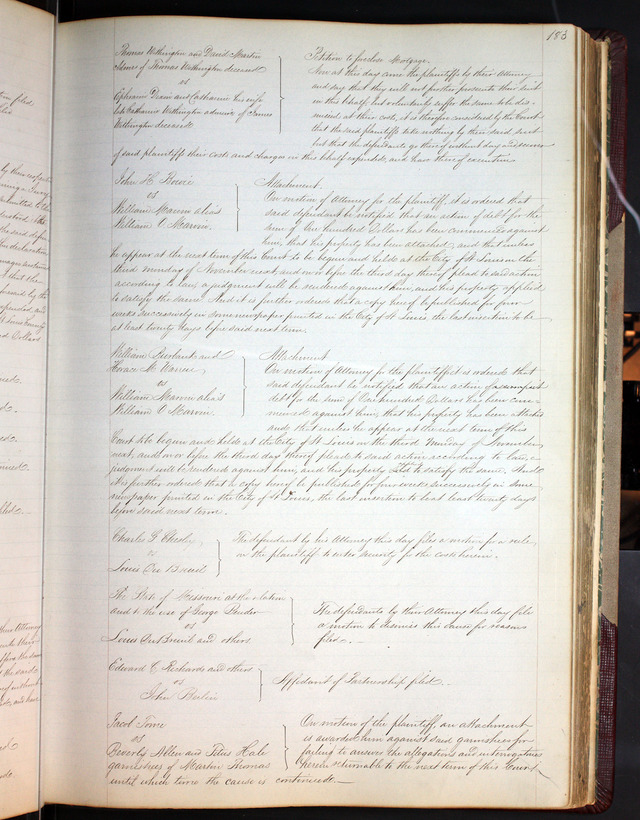 183
James Withington and David Martin
Admrs of Thomas Withington deceased
vs
Ephraim Drain and Catharine his wife
late Catharine Withington admrx of James
Withington deceased
Petition to foreclose Mortgage.
Now at this day come the plaintiffs by their Attorney
and say that they will not further prosecute their suit
in this behalf, but voluntarily suffer the same to be dis-
missed at their cost, it is therefore considered by the Court
that the said plaintiffs take nothing by their said suit
but that the defendants go thereof without day and recover
of said plaintiffs their costs and charges in this behalf expended, and have thereof execution
John H.
vs
William Marrow alias
William O Marrow.
Attachment.
On motion of Attorney for the plaintiff, it is ordered that
said defendant be notified that an action of debt for the
sum of One hundred Dollars has been commenced against
him, that his property has been attached, and that unless
he appear at the next term of this Court to be begun and held at the City of St Louis on the
third Monday of November next, and on or before the third day thereof plead to said action
according to law, a judgment will be rendered against him, and his property applied
to satisfy the same. And it is further ordered that a copy hereof be published for four
weeks successively in some newspaper printed in the City of St Louis, the last insertion to be
at least twenty days before said next term.
William and
Horace M.
vs
William Marrow alias
William O Marrow.
Attachment
On motion of Attorney for the plaintiffs it is ordered that
said defendant be notified that an action of
debt for the sum of One hundred Dollars has been com-
menced against him, that his property has been attached
and that unless he appear at the next term of this
Court to be begun and held at the City of St Louis on the third Monday of November
next, and on or before the third day thereof plead to said action according to law, a
judgment will be rendered against him, and his property to satisfy the same. And
it is further ordered that a copy hereof be published for four weeks successively in some
newspaper printed in the City of St Louis, the last insertion to be at least twenty days
before said next term.
Charles G
vs
Louis Du Breuil
The defendant by his Attorney this day files a motion for a rule
on the plaintiff to enter security for the costs herein.
The State of Missouri at the relation
and to the use of George
vs
Louis Du Breuil and others
The defendants by their Attorney this day files
a motion to dismiss this cause for reasons
filed.
Edward C. Richards and others
vs
John
Affidavit of Partnership filed
Jacob
vs
Beverly Allen and Titus Hale
garnishees of Martin Thomas
On motion of the plaintiff an attachment
is awarded him against said garnishees for
failing to answer the allegations and interrogatories
herein returnable to the next term of this Court,
until which time the cause is continued